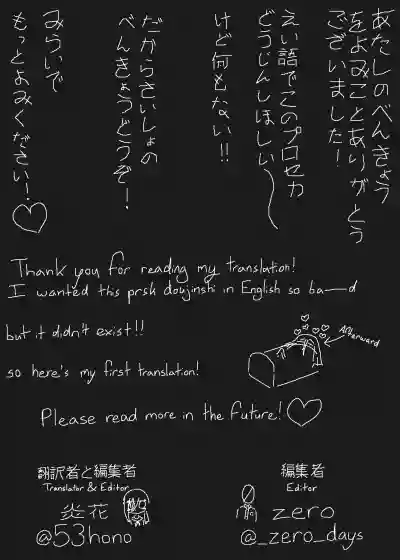 あたしのべんきょう
をよみことありがとう
ございました!
えい語でこのプロセカ
どうじんしほしい〜
けど何もない!!
だからさいしょの
べんきょうどうぞ!
みらいで
もっとよみください!♡
Thank you for reading my translation!
I wanted this prsk doujinshi in English so ba—d
but it didn't exist!!
so here's my first translation!
Afterward
Please read more in the future!♡
翻訳者と編集者
Translator & Editor
炎花
@53hono
編集者
Editor
zero
@_zero_days